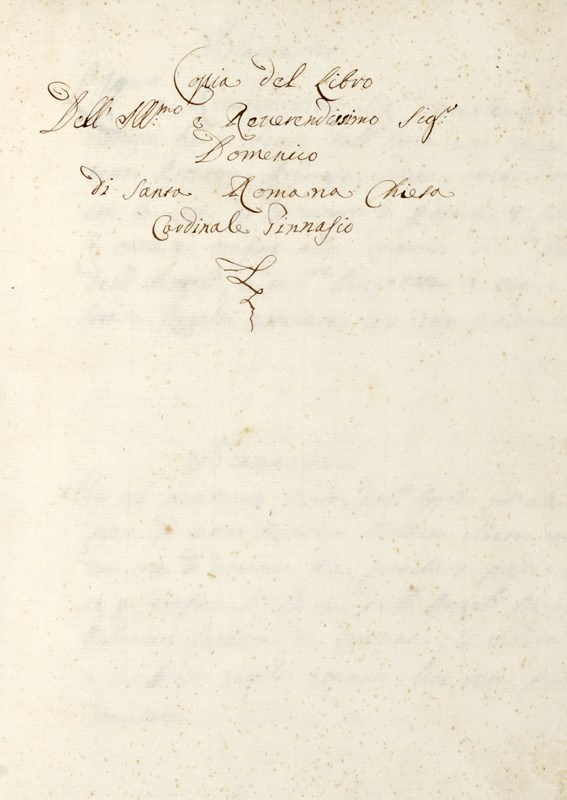 Copia del Libro
Dell' Ill.mo e Reuerendissimo Sig.r
Domenico
di Santa Romana Chiesa
Cardinale Ginnasio